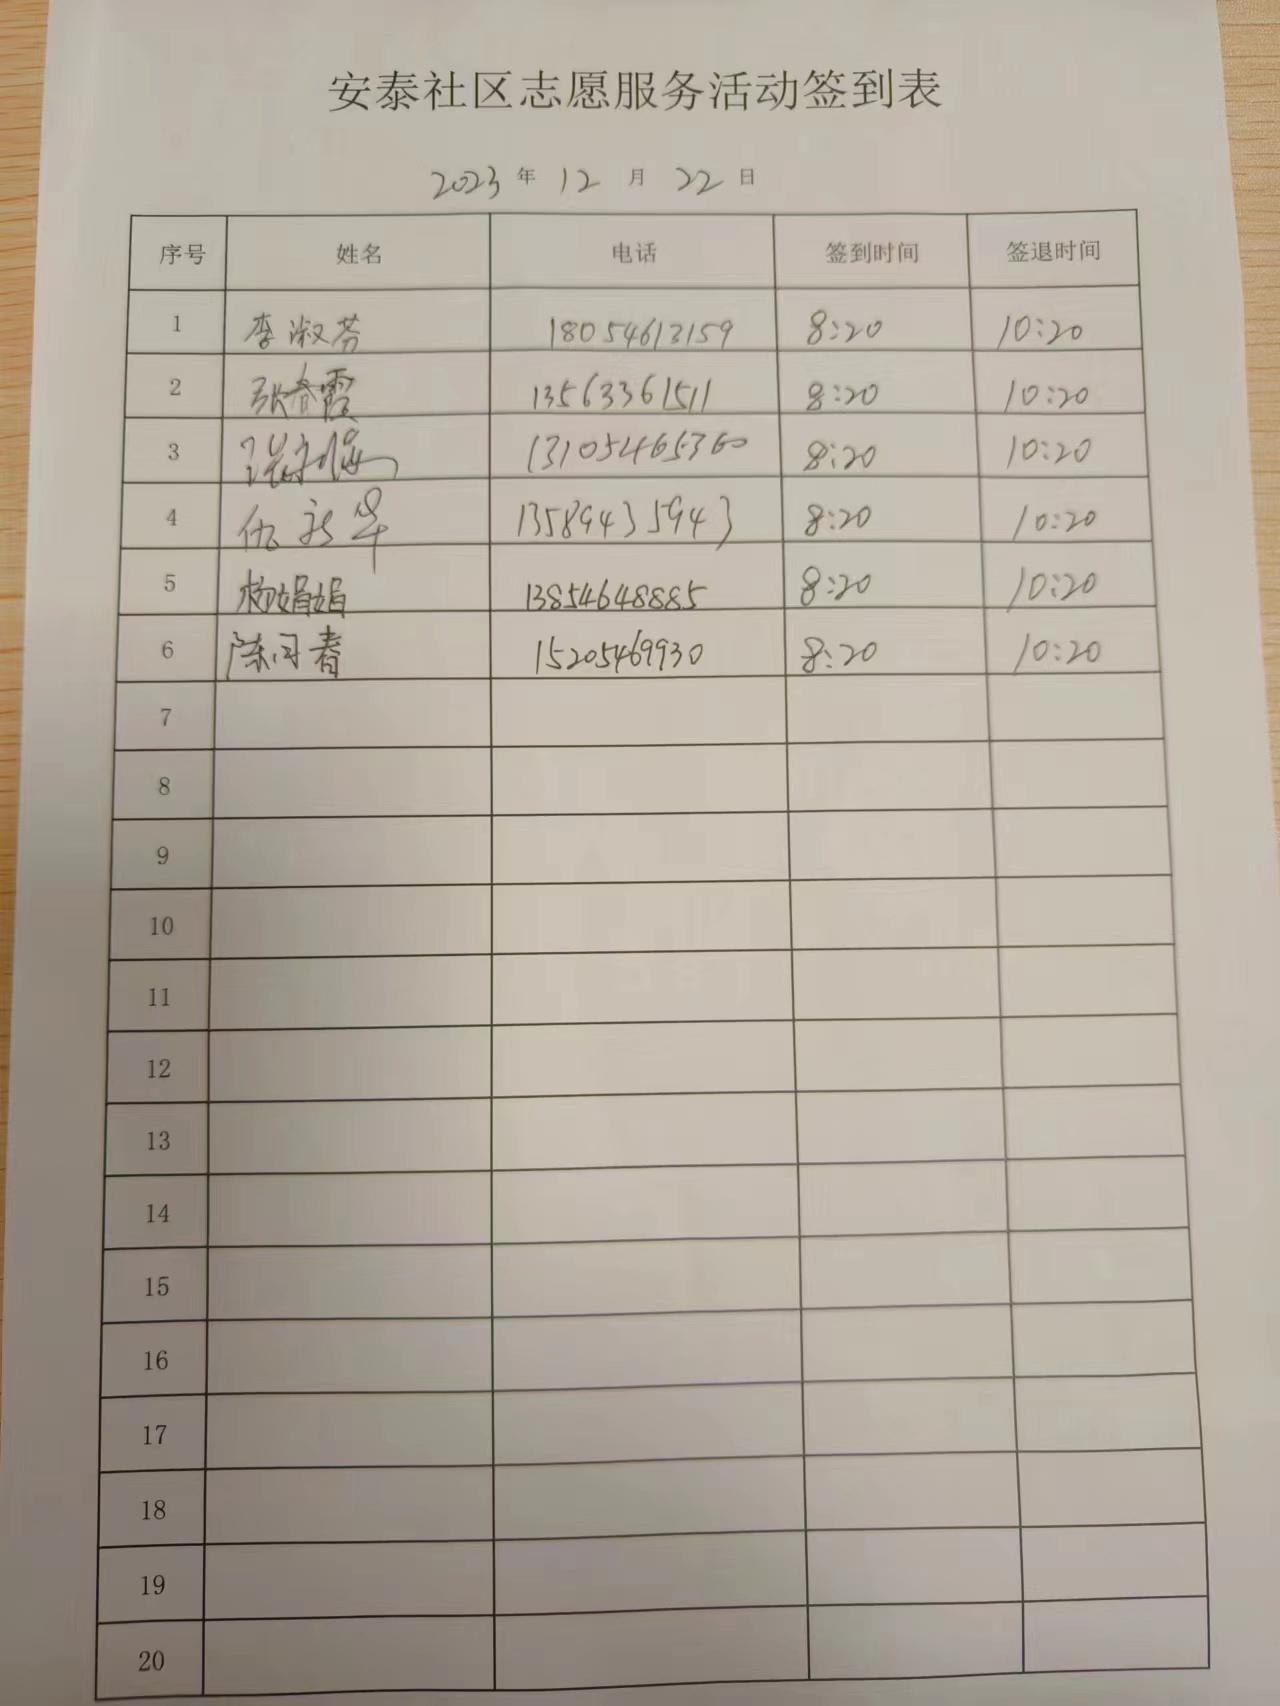 安泰社区志愿服务活动签到表
2023 年 12 月 22 日
序号 姓名 电话 签到时间 签退时间
1 李淑芬 18054613159 8:20 10:20
2 张春霞 13563361511 8:20 10:20
3 13105465360 8:20 10:20
4 仇新华 13589435943 8:20 10:20
5 杨娟娟 13854648885 8:20 10:20
6 陈同春 15205469930 8:20 10:20
7
8
9
10
11
12
13
14
15
16
17
18
19
20